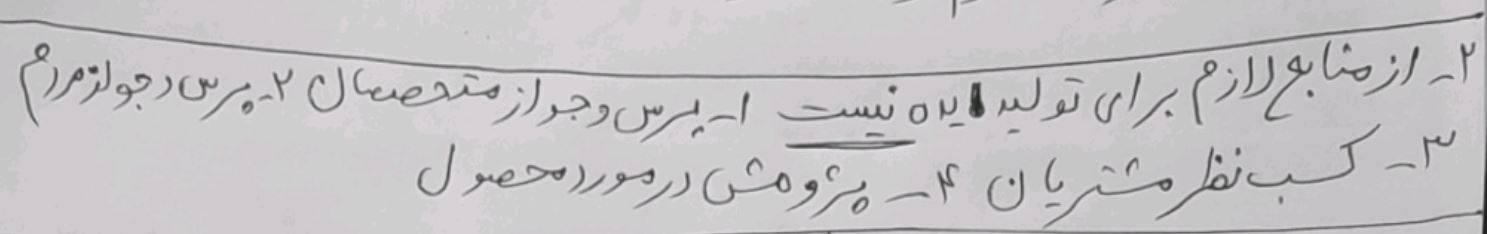 ۲- از منابع لازم برای تولید ایده نیست ۱- پرس وجو از متخصصان ۲- پرس وجو از مردم
۳- کسب نظر مشتریان ۴- پژوهش در مورد محصول